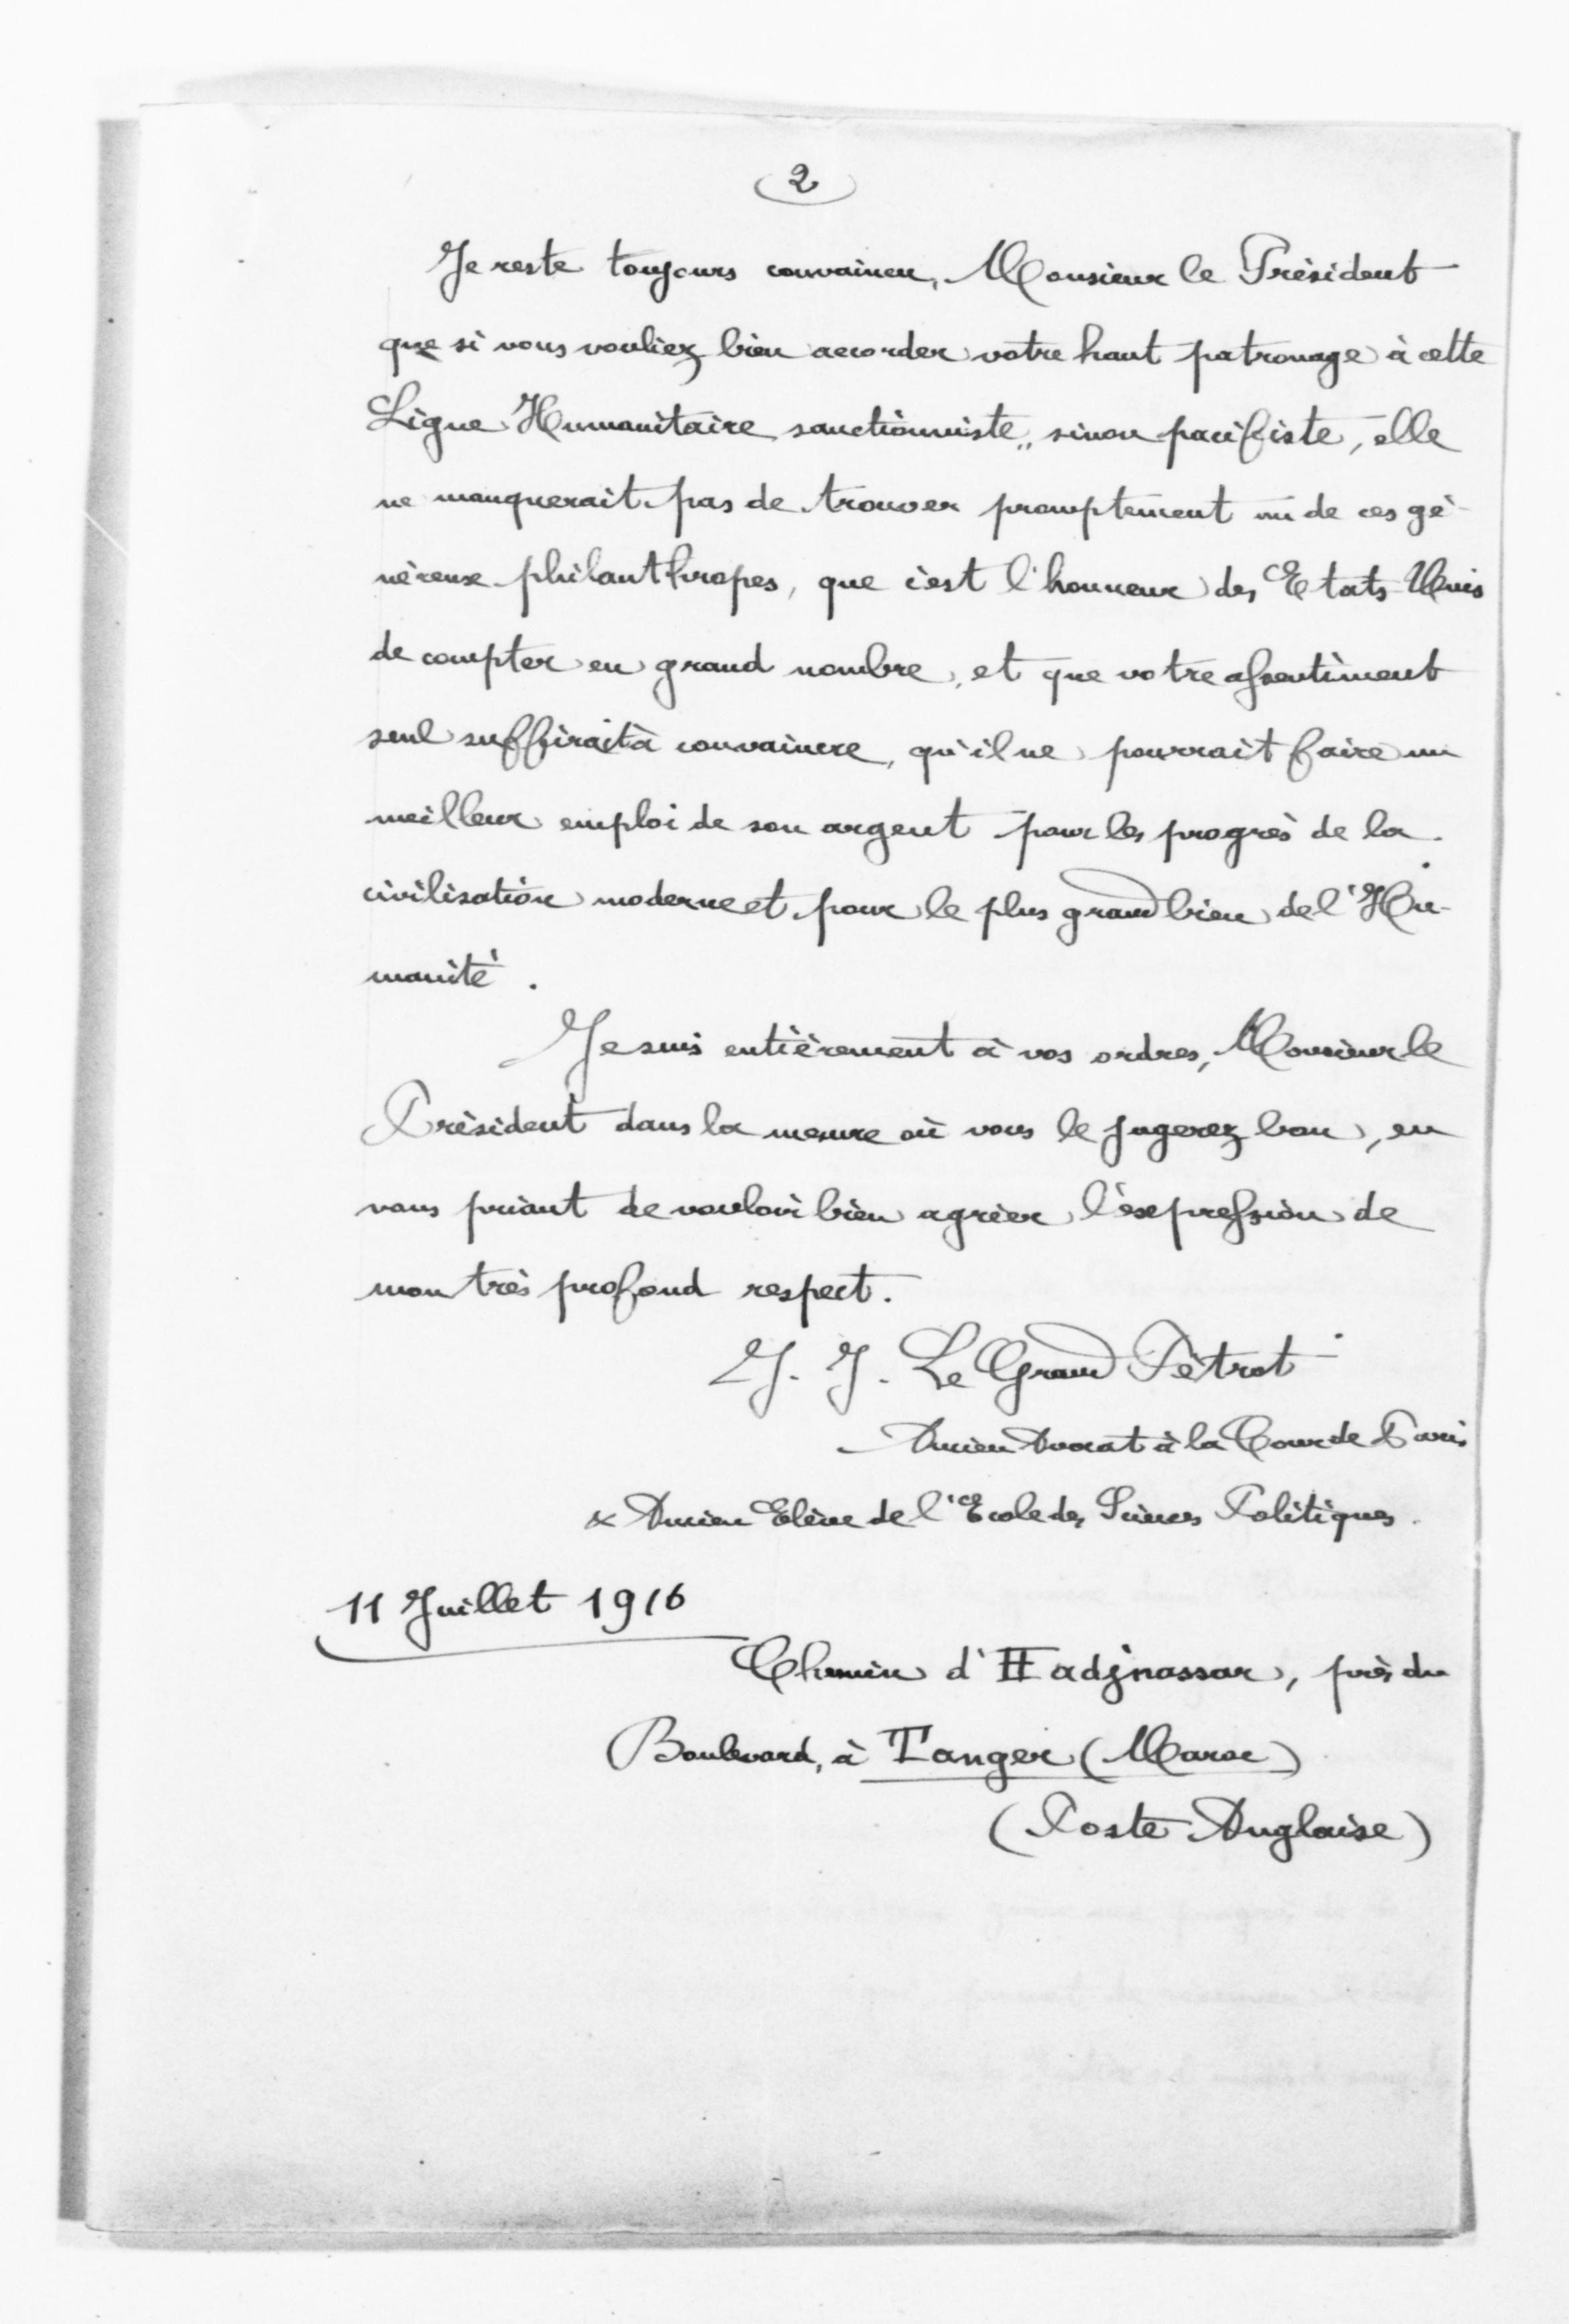 2
Je reste toujours convaincu, Monsieur le Président
que si vous vouliez bien accorder votre haut patronage à cette
Ligue Humanitaire sanctionniste, sinon pacifiste, elle
ne manquerait pas de trouver promptement un de ces gé-
néreux philanthropes, que c'est l'honneur des Etats-Unis
de compter en grand nombre, et que votre assentiment
seul suffirait à convaincre, qu'il ne pourrait faire un
meilleur emploi de son argent pour les progrès de la
civilisation moderne et pour le plus grand bien de l'Hu-
manité.
Je suis entièrement à vos ordres, Monsieur le
Président dans la mesure où vous le jugerez bon, en
vous priant de vouloir bien agréer l'expression de
mon très profond respect.
J. J. Le Grand Pétrot
Ancien Avocat à la Cour de Paris
& Ancien Elève de l'Ecole des Sciences Politiques.
11 Juillet 1916
Chemin d'Hadjnassar, près du
Boulevard, à Tanger (Maroc)
(Poste Anglaise)